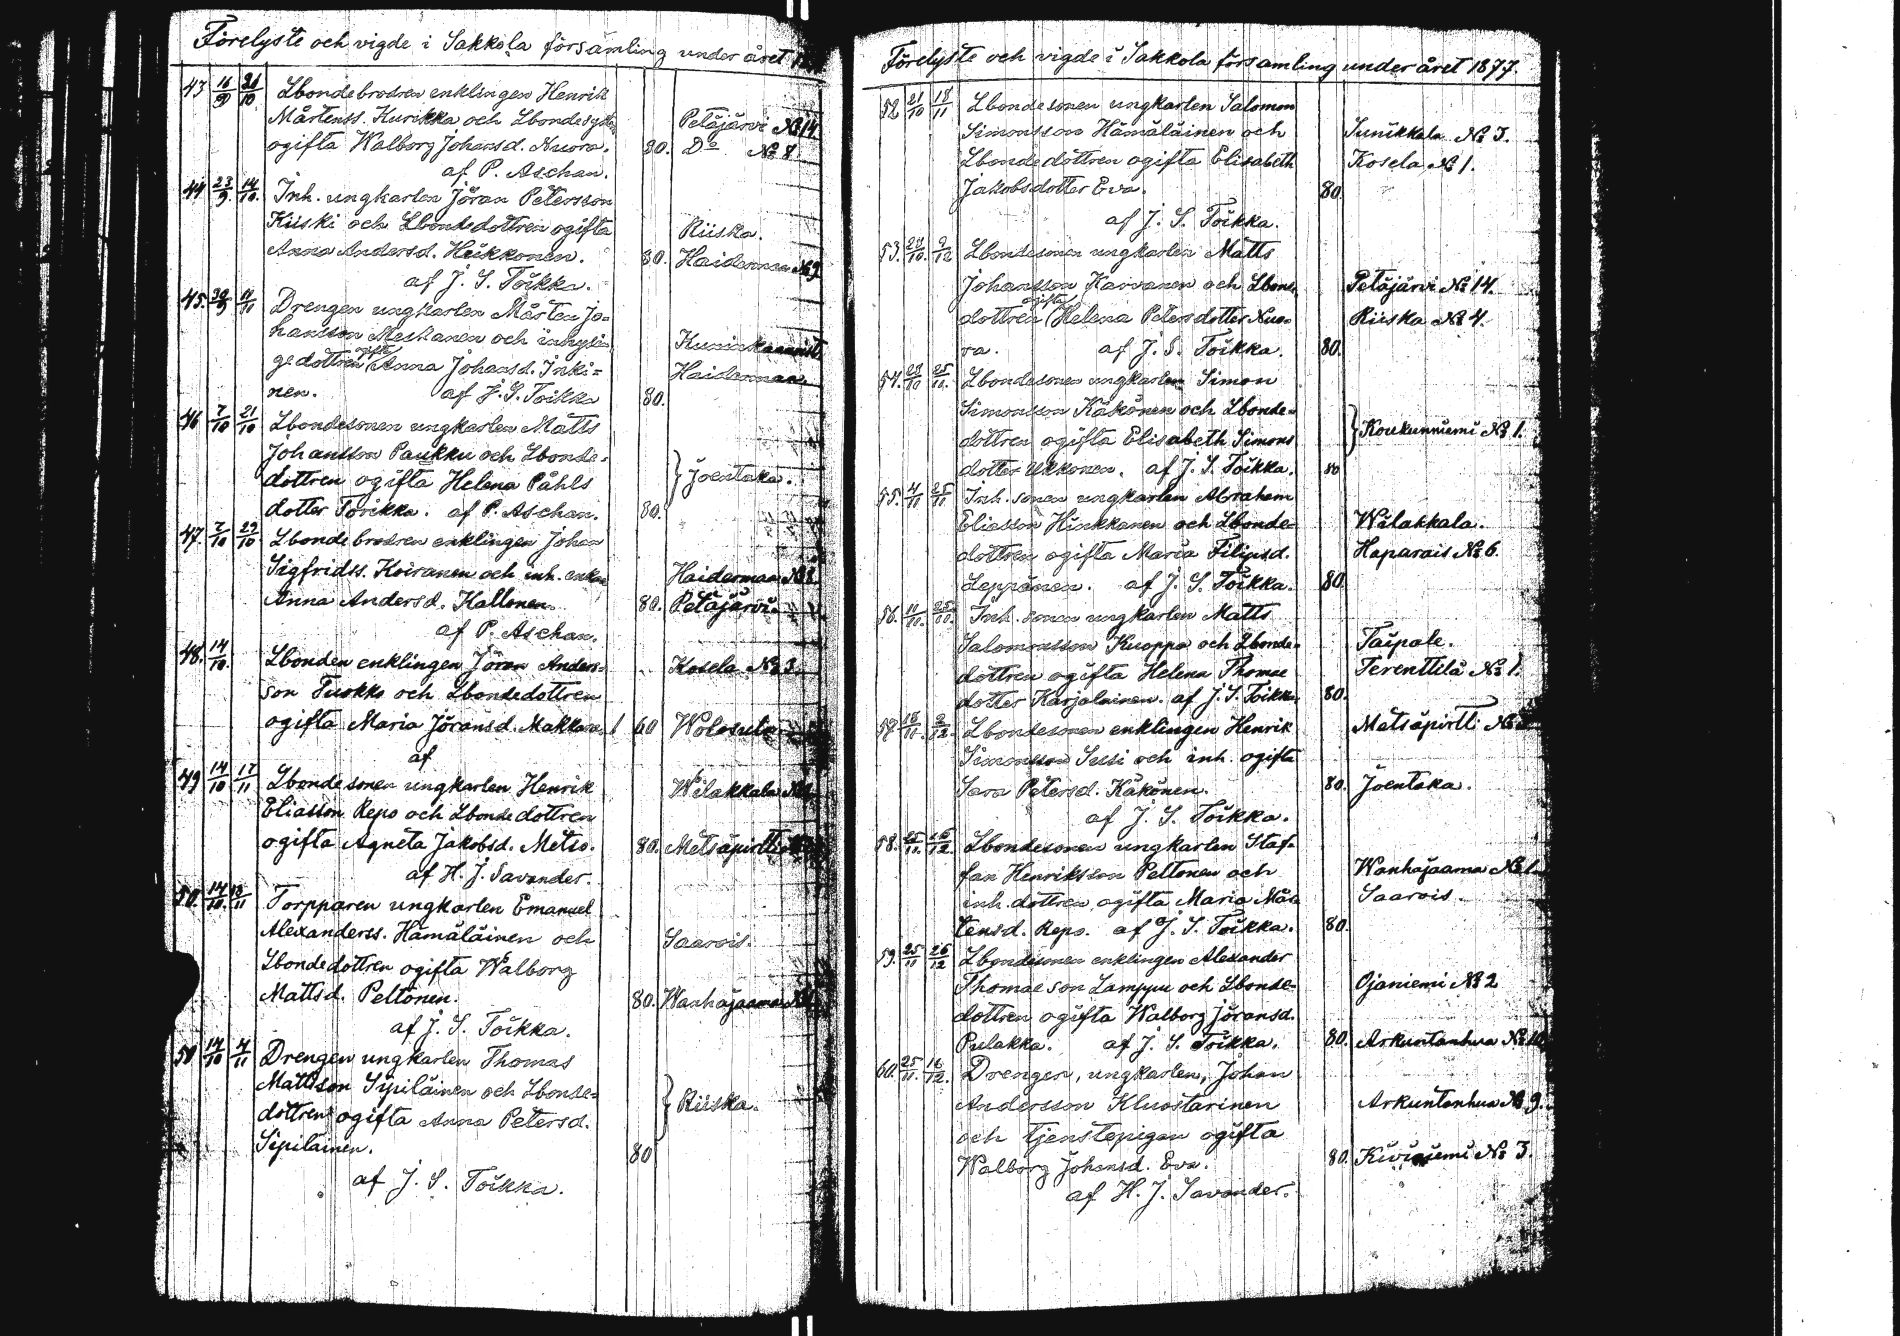 Förelyste och vigde i Sakkola församling under året
43 16/9 21/10 Lbondebrodren enklingen Henrik
Mårtenss. Kurikka och Lbondesyst. Petäjärvi № 14
ogifta Walborg Johansd. Nuora. 80. Do № 8
af P. Aschan.
44 23/9. 14/10. Inh. ungkarlen Jöran Petersson
Kiiski och Lbondedottren ogifta Riiska.
Anna Andersd. Heikkonen. 80. Haiderman № 2
af J. S. Toikka.
45. 30/9 11/11 Drengen ungkarlen Mårten Jo=
hansson Meskanen och inhysin
gedottren ogifta Anna Johansd. Inki= Haiderman.
nen. af J. S. Toikka 80.
46 7/10 21/10 Lbondesonen ungkarlen Matts
Johansson Paukku och Lbonde=
dottren ogifta Helena Påhls } Joentaka.
dotter Torikka. af P. Aschan. 80.
47. 7/10 29/10 Lbondebrodren enklingen Johan
Sigfridss. Koiranen och inh. enkan Haiderman № 8.
Anna Andersd. Kallonen. 80. Petäjärvi.
af P. Aschan.
48. 14/10. Lbonden enklingen Jöran Anders= Kosela № 3.
son Tuokko och Lbondedottren
ogifta Maria Jöransd. Makkara 1 60 Wolosula
af
49 14/10 17/11 Lbondesonen ungkarlen Henrik Wilakkala №
Eliasson Repo och Lbondedottren
ogifta Agneta Jakobsd. Metso. 80. Metsäpirtti
af H. J. Savander.
50. 14/10. 18/11 Torpparen ungkarlen Emanuel
Alexanderss. Hämäläinen och Saarois.
Lbondedottren ogifta Walborg
Mattsd. Peltonen. 80. Wanhajaama №
af J. S. Toikka.
51 14/10 4/11 Drengen ungkarlen Thomas
Mattsson Sipiläinen och Lbonde=
dottren ogifta Anna Petersd. } Riiska.
Sipiläinen. 80
af J. S. Toikka.
Förelyste och vigde i Sakkola församling under året 1877.
52 21/10 18/11 Lbondesonen ungkarlen Salomon
Simonsson Hämäläinen och Sunikkala № 5.
Lbondedottren ogifta Elisabeth Kosela № 1.
Jakobsdotter Eva. 80.
af J. S. Toikka.
53. 28/10. 9/12 Lbondesonen ungkarlen Matts
Johansson Karvanen och Lbonde Petäjärvi № 14.
dottren ogifta Helena Petersdotter Nuo= Riiska № 4.
ra. af J. S. Toikka. 80.
54. 28/10 25/11. Lbondesonen ungkarlen Simon
Simonsson Käkönen och Lbonde=
dottren ogifta Elisabeth Simons } Koukunniemi № 1.
dotter Ukkonen. af J. S. Toikka. 80
55. 4/11 25/11 Inh. sonen ungkarlen Abraham
Eliasson Hinkkanen och Lbonde= Wilakkala.
dottren ogifta Maria Filipsd. Haparais № 6.
Leppänen. af J. S. Toikka. 80.
56. 11/11. 25/11. Inh. sonen ungkarlen Matts
Salomonsson Kuoppa och Lbonde= Taipale.
dottren ogifta Helena Thomae Terenttilä № 1.
dotter Karjalainen. af J. S. Toikka 80.
57 18/11. 9/12. Lbondesonen enklingen Henrik Metsäpirtti №
Simonsson Susi och inh. ogifta
Sara Petersd. Käkönen. 80. Joentaka.
af J. S. Toikka.
58. 25/11. 26/12. Lbondesonen ungkarlen Staf=
fan Henriksson Peltonen och Wanhajaama № 1.
inh. dottren ogifta Maria Mår= Saarois.
tensd. Repo. af J. S. Toikka. 80.
59. 25/11 26/12 Lbondesonen enklingen Alexander
Thomaeson Lamppu och Lbonde= Ojaniemi № 2
dottren ogifta Walborg Jöransd.
Pulakka. af J. S. Toikka. 80. Arkuntanhua № 10.
60. 25/11. 16/12. Drengen, ungkarlen, Johan
Andersson Kluostarinen Arkuntanhua № 9.
och tjenstepigan ogifta
Walborg Johansd. Eva. 80. Kiviniemi № 3.
af H. J. Savander.